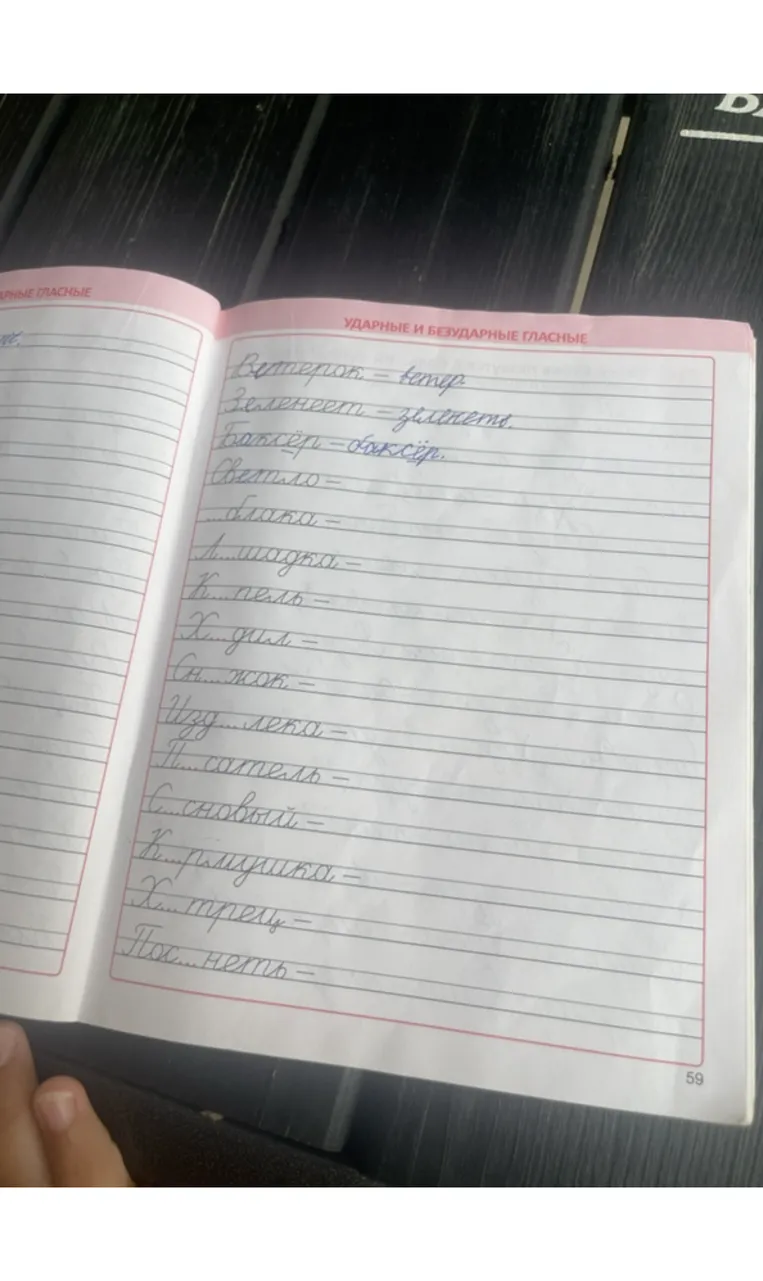 АРНЫЕ ГЛАСНЫЕ
УДАРНЫЕ И БЕЗУДАРНЫЕ ГЛАСНЫЕ
Ветерок – ветер.
Зеленеет – зеленеть.
Баксёр – баксёр.
Светло –
...блака –
Л...шадка –
К...пель –
Х...дил –
Сн...жок –
Изд...лека –
П...сатель –
С...сновый –
К...рмушка –
Х...трец –
Пос...неть –
59